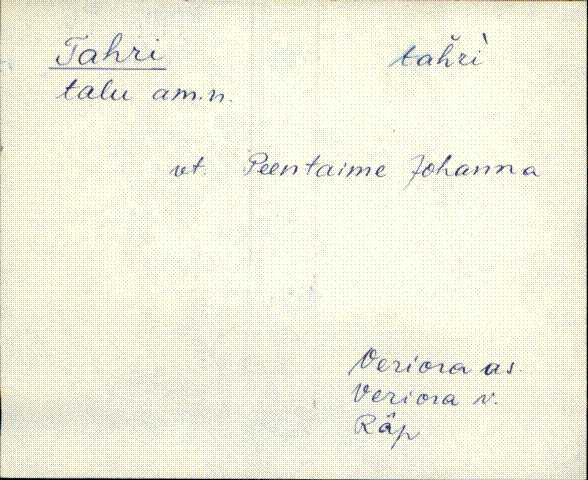 Tahri taȟri̇̀
talu am.n.
vt. Peentaime Johanna
Veriora as.
Veriora v.
Râp